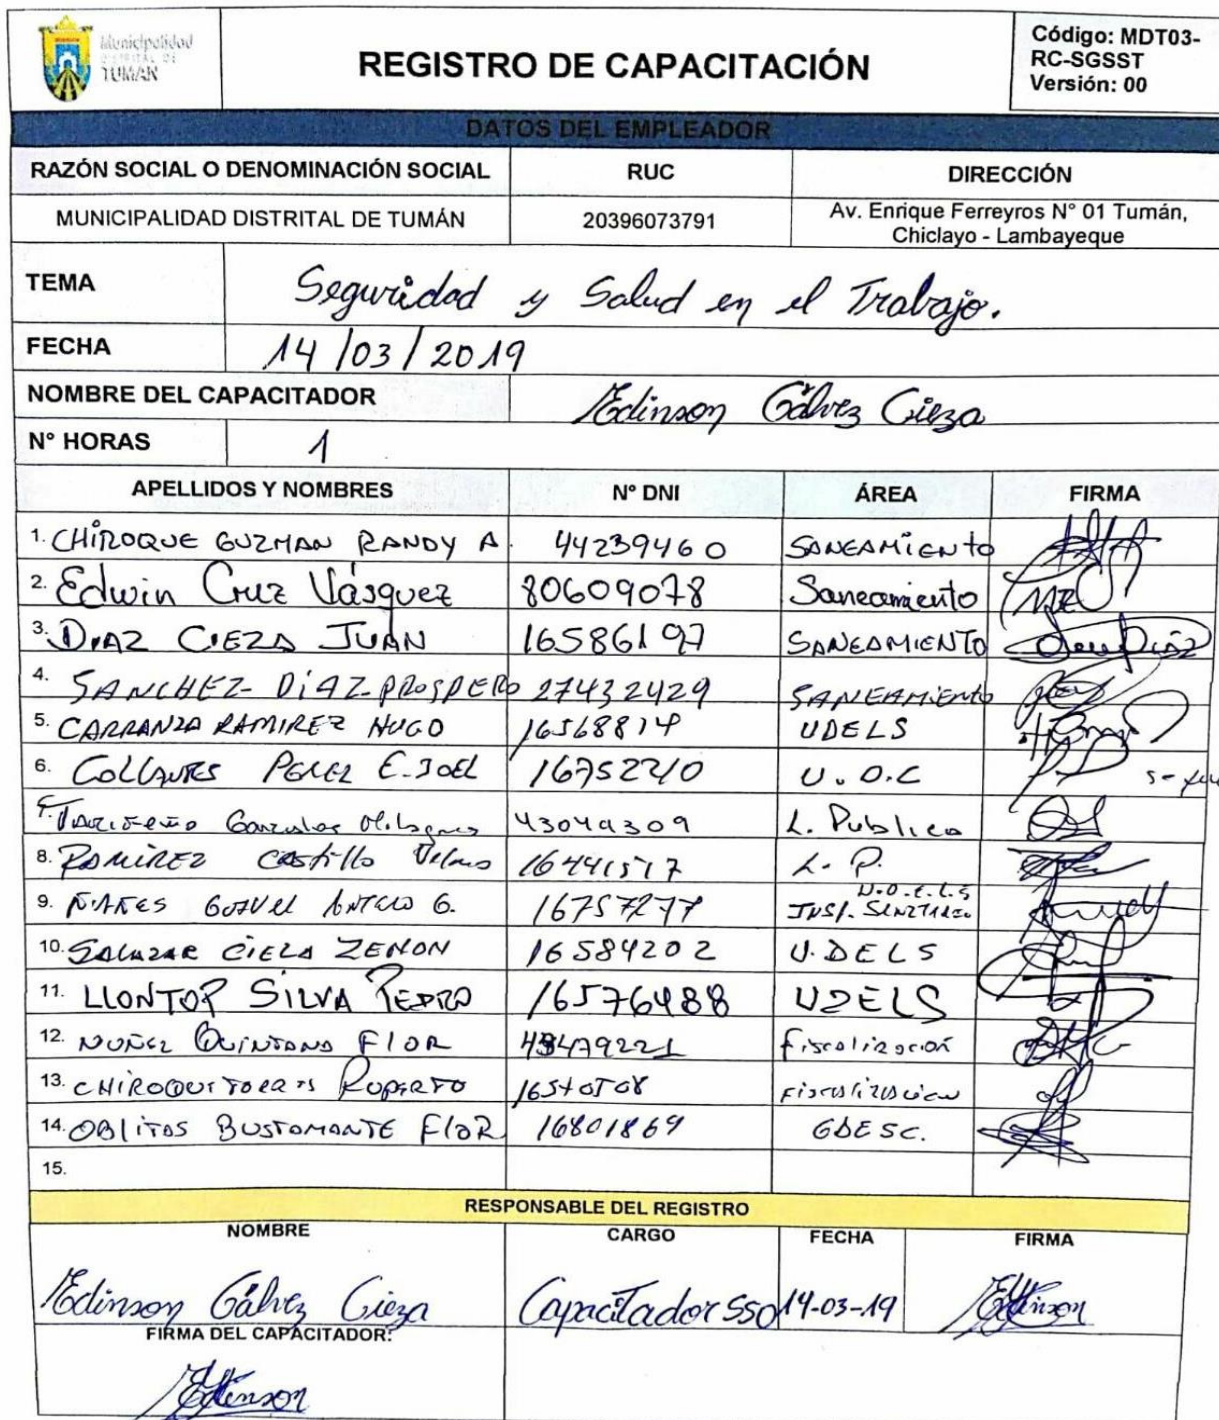 Municipalidad
DISTRITAL DE
TUMAN
REGISTRO DE CAPACITACIÓN
Código: MDT03-
RC-SGSST
Versión: 00
DATOS DEL EMPLEADOR
RAZÓN SOCIAL O DENOMINACIÓN SOCIAL RUC DIRECCIÓN
MUNICIPALIDAD DISTRITAL DE TUMÁN 20396073791 Av. Enrique Ferreyros N° 01 Tumán,
Chiclayo - Lambayeque
TEMA Seguridad y Salud en el Trabajo.
FECHA 14/03/2019
NOMBRE DEL CAPACITADOR Edinson Gálvez Cieza
N° HORAS 1
APELLIDOS Y NOMBRES N° DNI ÁREA FIRMA
1. CHIROQUE GUZMAN RANDY A. 44239460 SANEAMIENTO
2. Edwin Cruz Vásquez 80609078 Saneamiento
3. DIAZ CIEZA JUAN 16586197 SANEAMIENTO
4. SANCHEZ DIAZ PROSPERO 27432429 SANEAMIENTO
5. CARRANZA RAMIREZ HUGO 16568814 UDELS
6. COLLANTES PEREZ E. JOEL 16752210 U.O.C
7. Gonzales Milagros 43049309 L. Publica
8. RAMIREZ Castillo 16441517 L. P.
U.D.E.L.S
9. 16757277
10. SALAZAR CIEZA ZENON 16584202 U.DELS
11. LLONTOP SILVA PEDRO 16576488 UDELS
12. NUÑEZ QUINTANA FLOR Fiscalización
13. CHIROQUE TORRES RUPERTO Fiscalización
14. OBLITAS BUSTAMANTE FLOR 16801869 GDESC.
15.
RESPONSABLE DEL REGISTRO
NOMBRE CARGO FECHA FIRMA
Edinson Gálvez Cieza Capacitador SSO 14-03-19 Edinson
FIRMA DEL CAPACITADOR:
Edinson